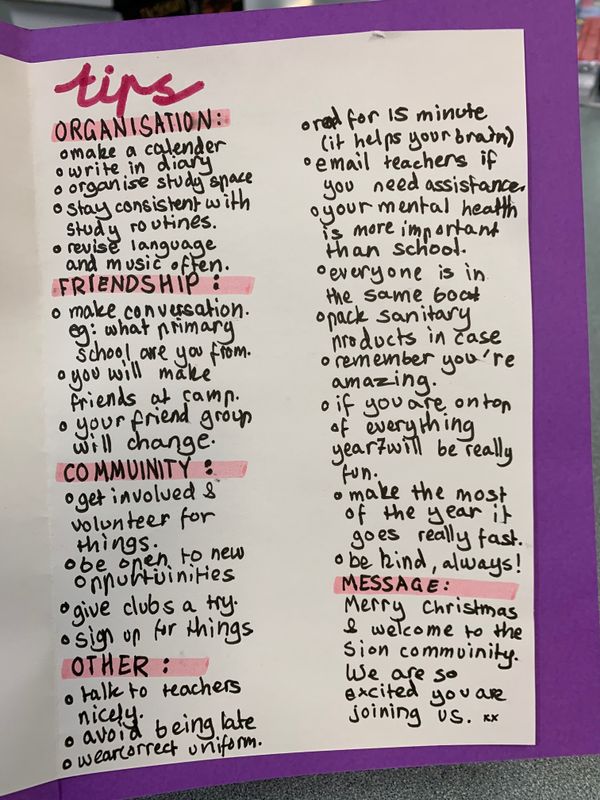 tips
ORGANISATION:
o make a calender
o write in diary
o organise study space
o stay consistent with
study routines.
o revise language
and music often.
FRIENDSHIP :
o make conversation.
eg: what primary
school are you from.
o you will make
friends at camp.
o your friend group
will change.
COMMUINITY :
o get involved &
volunteer for
things.
o be open to new
oppurtuinities
o give clubs a try.
o sign up for things
OTHER :
o talk to teachers
nicely.
o avoid being late
o wear correct uniform.
o read for 15 minute
(it helps your brain)
o email teachers if
you need assistance.
o your mental health
is more important
than school.
o everyone is in
the same boat
o pack sanitary
products in case
o remember you're
amazing.
o if you are on top
of everything
year 7 will be really
fun.
o make the most
of the year it
goes really fast.
o be kind, always!
MESSAGE:
Merry Christmas
& welcome to the
Sion commuinity.
We are so
excited you are
joining us. xx